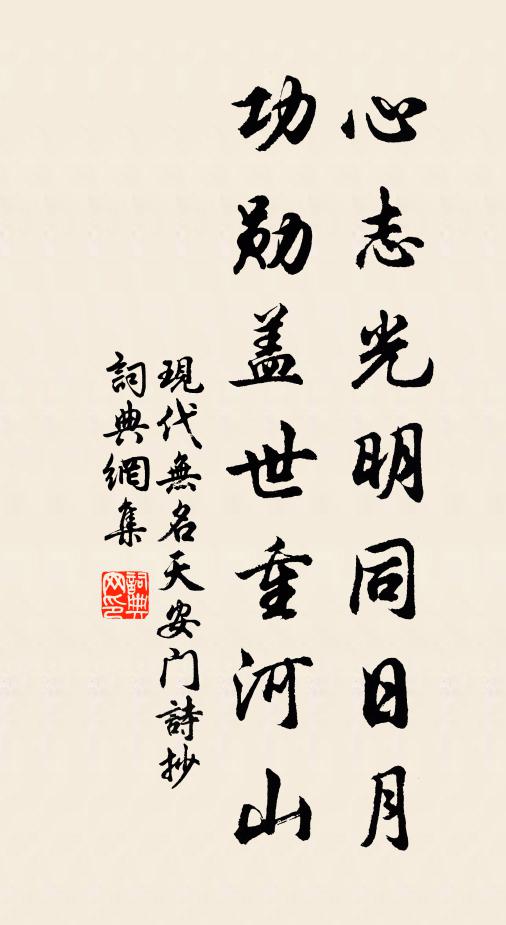 心志光明同日月
功勋盖世重河山
現代無名天安门詩抄
詞典網集
詞典网印